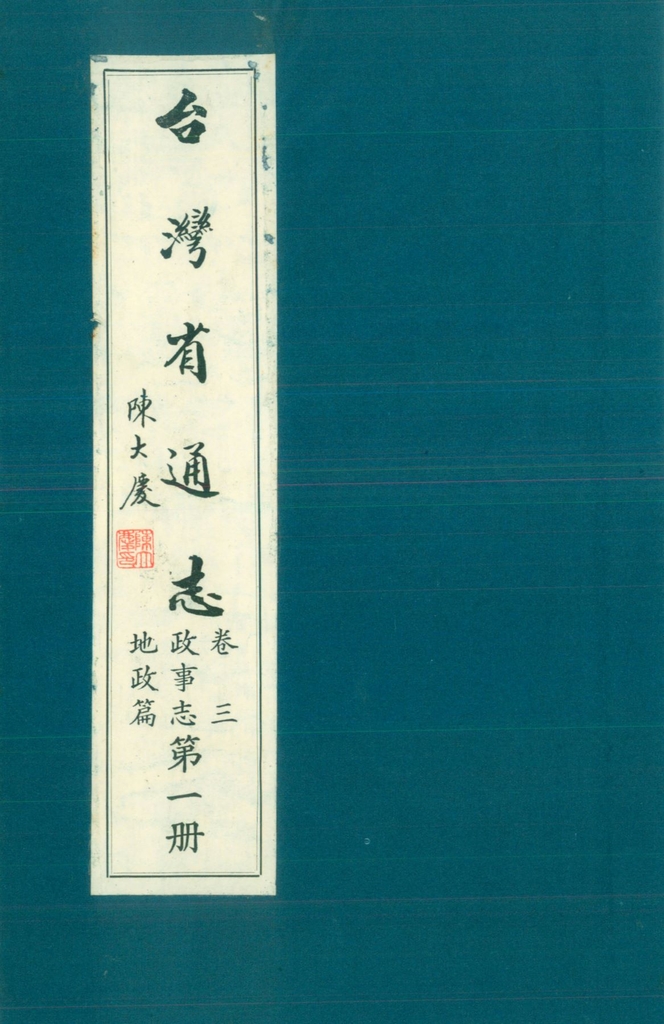 台灣省通志
卷三
政事志
地政篇
第一册
陳大慶
陳大慶印